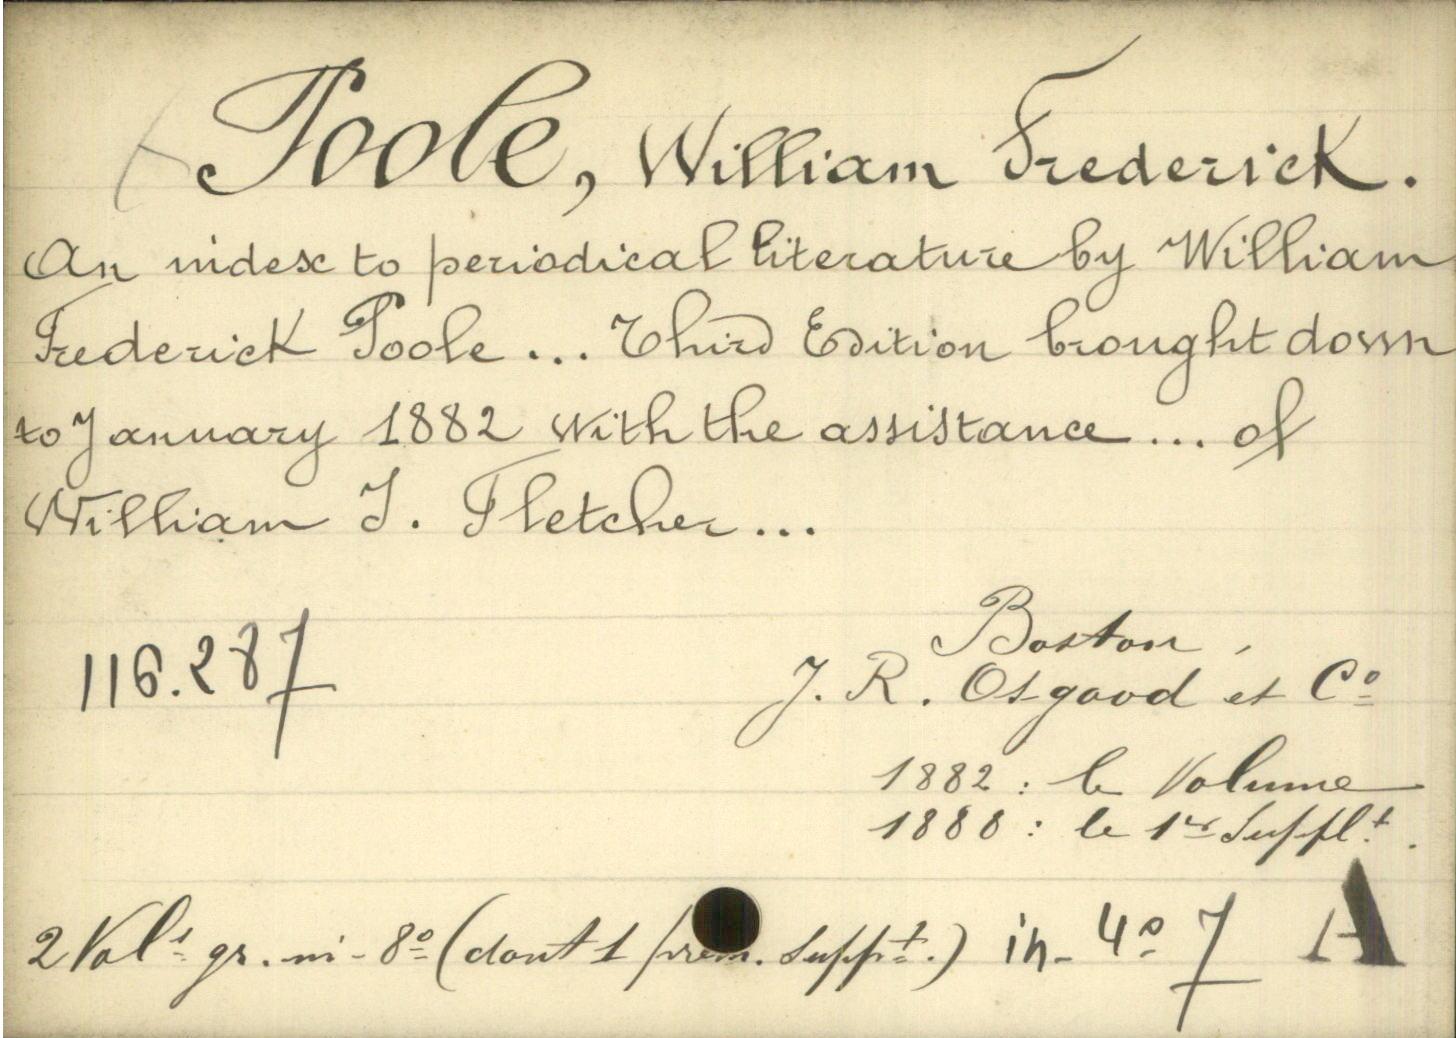 Poole, William Frederick.
An index to periodical literature by William
Frederick Poole ... Third Edition brought down
to January 1882 with the assistance ... of
William I. Fletcher ...
116.287
Boston,
J. R. Osgood et Cº
1882 : le Volume
1888 : le 1er Supplt.
2 Vols gr. in-8º (dont 1 prem. Suppt.) in-4º 7 A